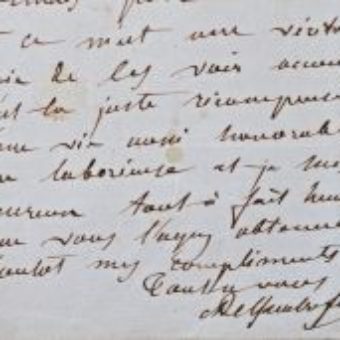 et ce m'est une vérita
oie de les voir accom
est la juste récompense
une vie aussi honorabl
ue laborieuse et je m
eureux tout à fait heu
ue vous l'ayez obtenue
compliments
Tout à vous